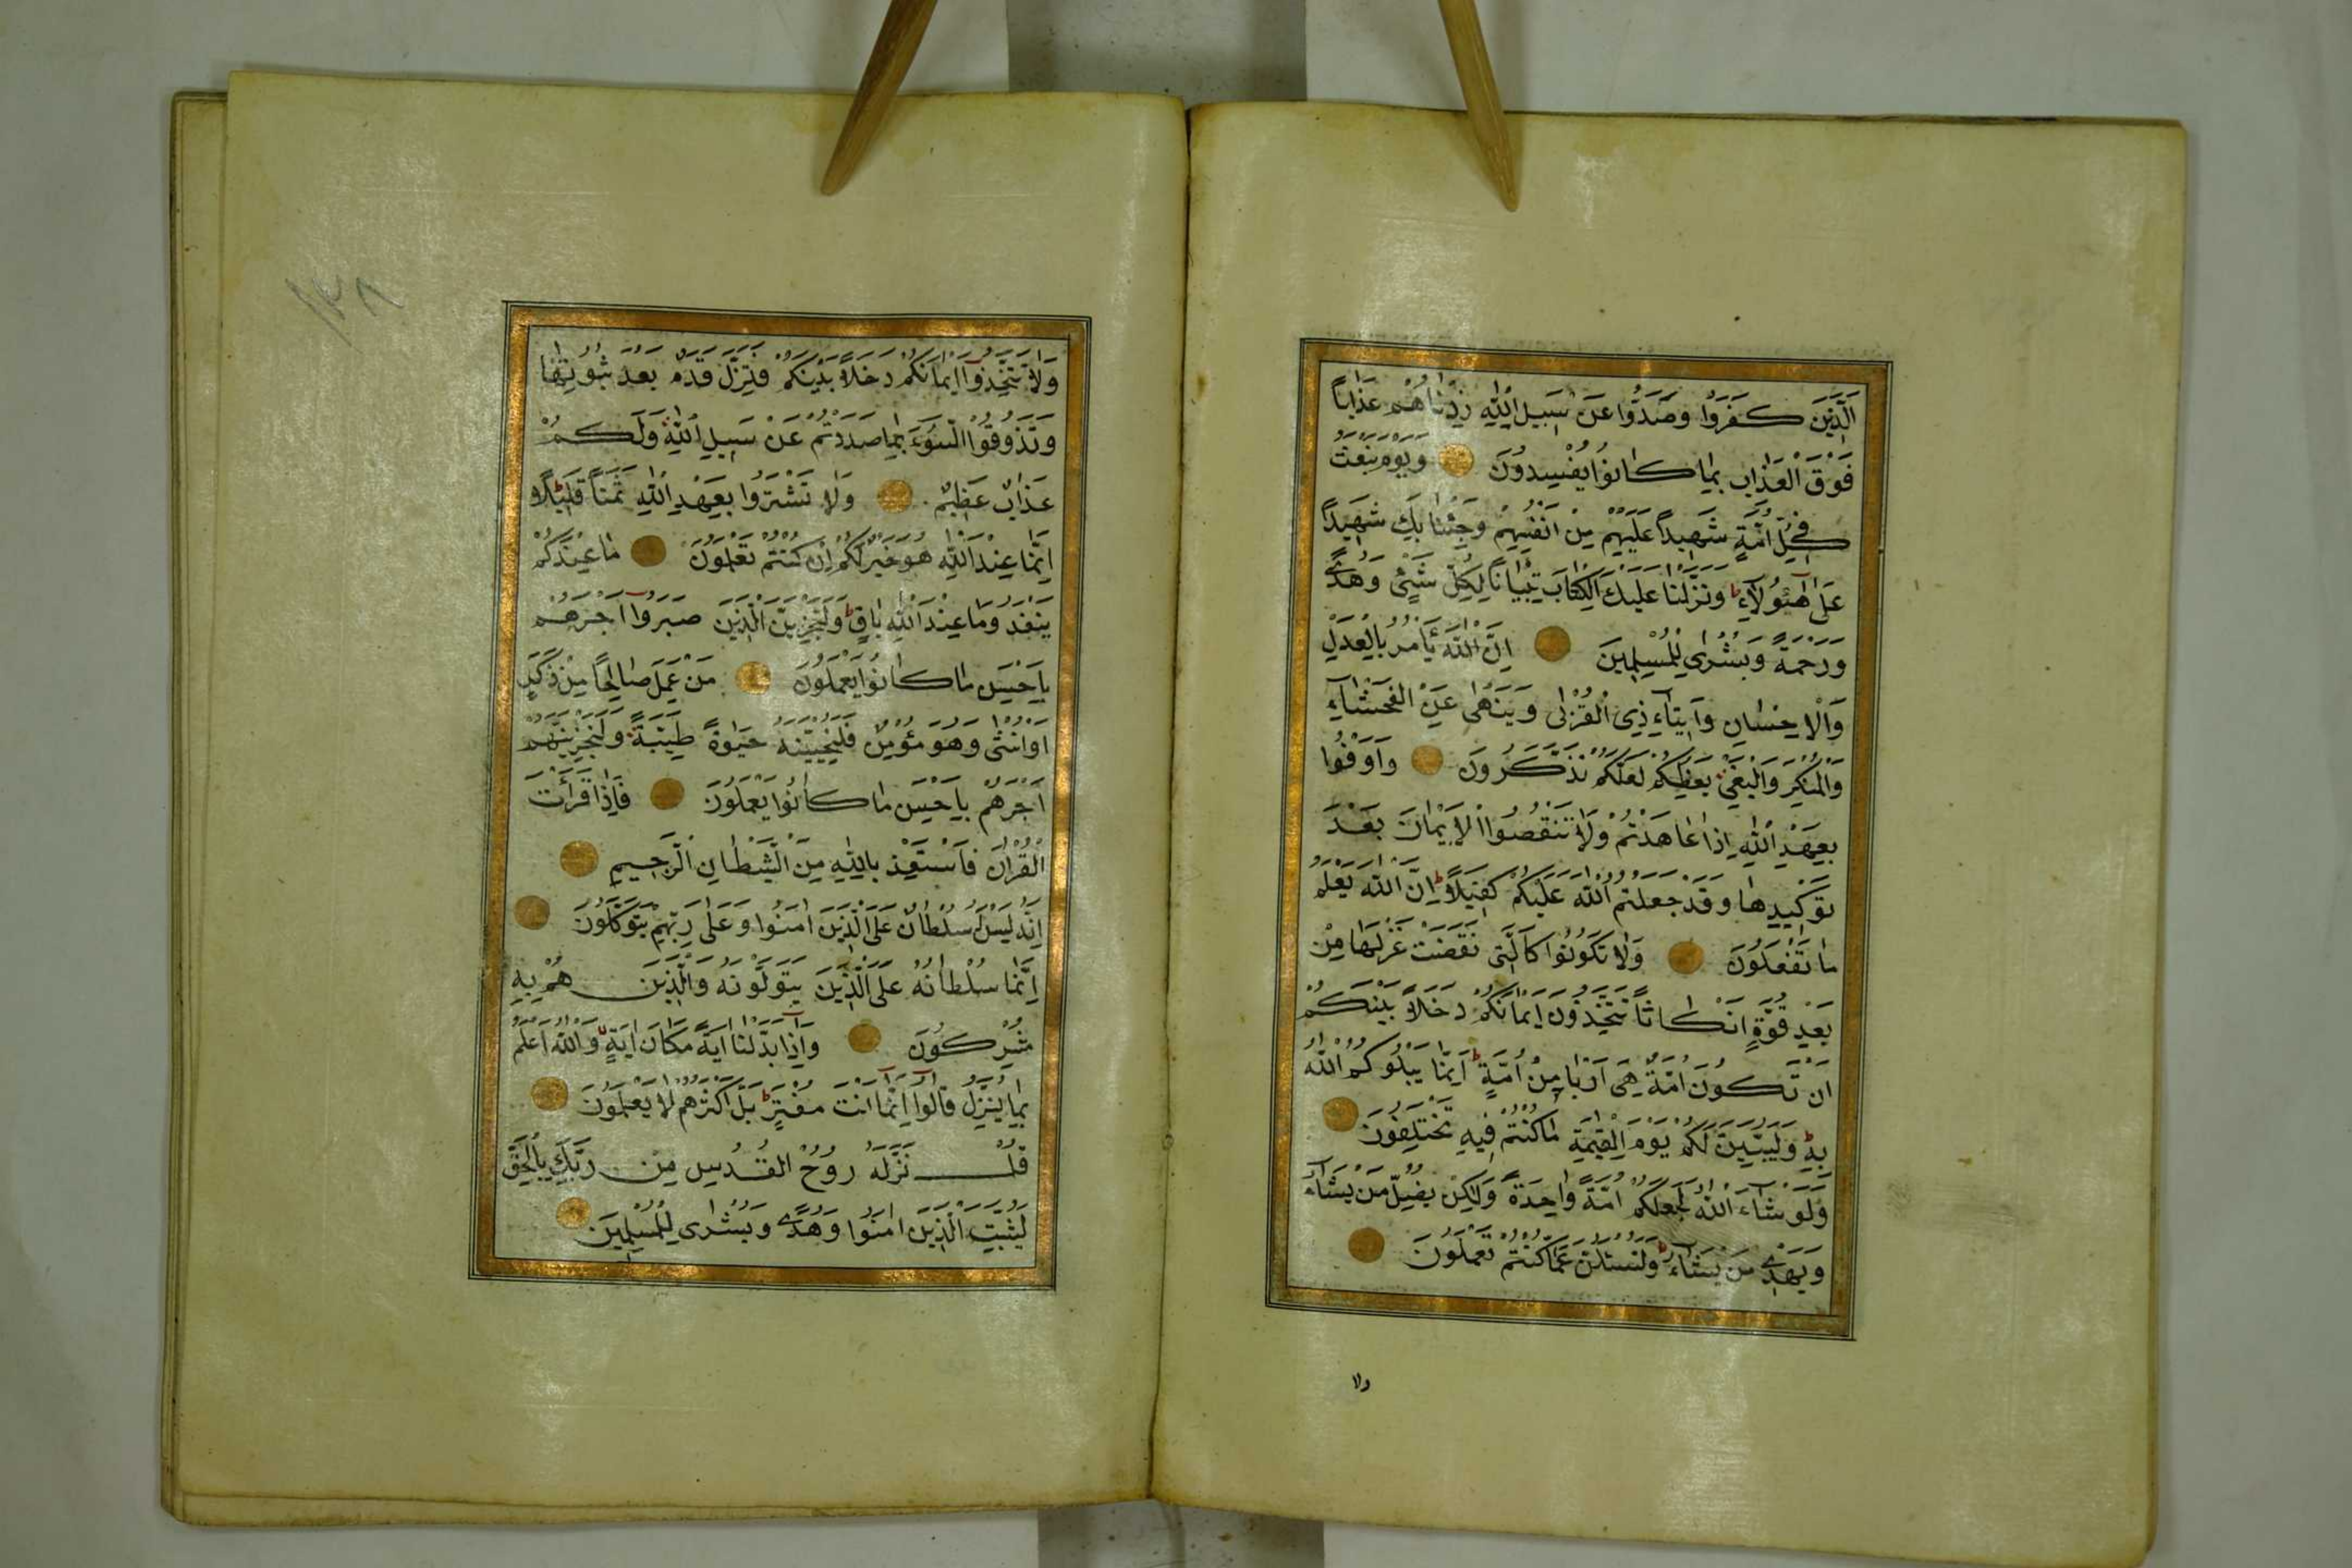 اَلَّذِينَ كَفَرُوا وَصَدُّوا عَنْ سَبِيلِ اللّٰهِ زِدْنَاهُمْ عَذَاباً
فَوْقَ الْعَذَابِ بِمَا كَانُوا يُفْسِدُونَ وَيَوْمَ نَبْعَثُ
فِي كُلِّ اُمَّةٍ شَهِيداً عَلَيْهِمْ مِنْ اَنْفُسِهِمْ وَجِئْنَا بِكَ شَهِيداً
عَلٰى هٰٓؤُلَآءِ ط وَنَزَّلْنَا عَلَيْكَ الْكِتَابَ تِبْيَاناً لِكُلِّ شَيْءٍ وَهُدًى
وَرَحْمَةً وَبُشْرٰى لِلْمُسْلِمِينَ اِنَّ اللّٰهَ يَأْمُرُ بِالْعَدْلِ
وَالْاِحْسَانِ وَاِيتَآءِ ذِي الْقُرْبٰى وَيَنْهٰى عَنِ الْفَحْشَآءِ
وَالْمُنْكَرِ وَالْبَغْيِ يَعِظُكُمْ لَعَلَّكُمْ تَذَكَّرُونَ وَاَوْفُوا
بِعَهْدِ اللّٰهِ اِذَا عَاهَدْتُمْ وَلَا تَنْقُضُوا الْاَيْمَانَ بَعْدَ
تَوْكِيدِهَا وَقَدْ جَعَلْتُمُ اللّٰهَ عَلَيْكُمْ كَفِيلًا ط اِنَّ اللّٰهَ يَعْلَمُ
مَا تَفْعَلُونَ وَلَا تَكُونُوا كَالَّتِي نَقَضَتْ غَزْلَهَا مِنْ
بَعْدِ قُوَّةٍ اَنْكَاثاً تَتَّخِذُونَ اَيْمَانَكُمْ دَخَلًا بَيْنَكُمْ
اَنْ تَكُونَ اُمَّةٌ هِيَ اَرْبٰى مِنْ اُمَّةٍ ط اِنَّمَا يَبْلُوكُمُ اللّٰهُ
بِهِ ط وَلَيُبَيِّنَنَّ لَكُمْ يَوْمَ الْقِيٰمَةِ مَا كُنْتُمْ فِيهِ تَخْتَلِفُونَ
وَلَوْ شَآءَ اللّٰهُ لَجَعَلَكُمْ اُمَّةً وَاحِدَةً وَلٰكِنْ يُضِلُّ مَنْ يَشَآءُ
وَيَهْدِي مَنْ يَشَآءُ ط وَلَتُسْئَلُنَّ عَمَّا كُنْتُمْ تَعْمَلُونَ
ولا
١٣٨
وَلَا تَتَّخِذُوٓا اَيْمَانَكُمْ دَخَلًا بَيْنَكُمْ فَتَزِلَّ قَدَمٌ بَعْدَ ثُبُوتِهَا
وَتَذُوقُوا السُّوٓءَ بِمَا صَدَدْتُمْ عَنْ سَبِيلِ اللّٰهِ وَلَكُمْ
عَذَابٌ عَظِيمٌ وَلَا تَشْتَرُوا بِعَهْدِ اللّٰهِ ثَمَناً قَلِيلًا ط
اِنَّمَا عِنْدَ اللّٰهِ هُوَ خَيْرٌ لَكُمْ اِنْ كُنْتُمْ تَعْلَمُونَ مَا عِنْدَكُمْ
يَنْفَدُ وَمَا عِنْدَ اللّٰهِ بَاقٍ ط وَلَنَجْزِيَنَّ الَّذِينَ صَبَرُوٓا اَجْرَهُمْ
بِاَحْسَنِ مَا كَانُوا يَعْمَلُونَ مَنْ عَمِلَ صَالِحاً مِنْ ذَكَرٍ
اَوْ اُنْثٰى وَهُوَ مُؤْمِنٌ فَلَنُحْيِيَنَّهُ حَيٰوةً طَيِّبَةً وَلَنَجْزِيَنَّهُمْ
اَجْرَهُمْ بِاَحْسَنِ مَا كَانُوا يَعْمَلُونَ فَاِذَا قَرَأْتَ
الْقُرْاٰنَ فَاسْتَعِذْ بِاللّٰهِ مِنَ الشَّيْطَانِ الرَّجِيمِ
اِنَّهُ لَيْسَ لَهُ سُلْطَانٌ عَلَى الَّذِينَ اٰمَنُوا وَعَلٰى رَبِّهِمْ يَتَوَكَّلُونَ
اِنَّمَا سُلْطَانُهُ عَلَى الَّذِينَ يَتَوَلَّوْنَهُ وَالَّذِينَ هُمْ بِهِ
مُشْرِكُونَ وَاِذَا بَدَّلْنَآ اٰيَةً مَكَانَ اٰيَةٍ وَاللّٰهُ اَعْلَمُ
بِمَا يُنَزِّلُ قَالُوٓا اِنَّمَآ اَنْتَ مُفْتَرٍ ط بَلْ اَكْثَرُهُمْ لَا يَعْلَمُونَ
قُلْ نَزَّلَهُ رُوحُ الْقُدُسِ مِنْ رَبِّكَ بِالْحَقِّ
لِيُثَبِّتَ الَّذِينَ اٰمَنُوا وَهُدًى وَبُشْرٰى لِلْمُسْلِمِينَ